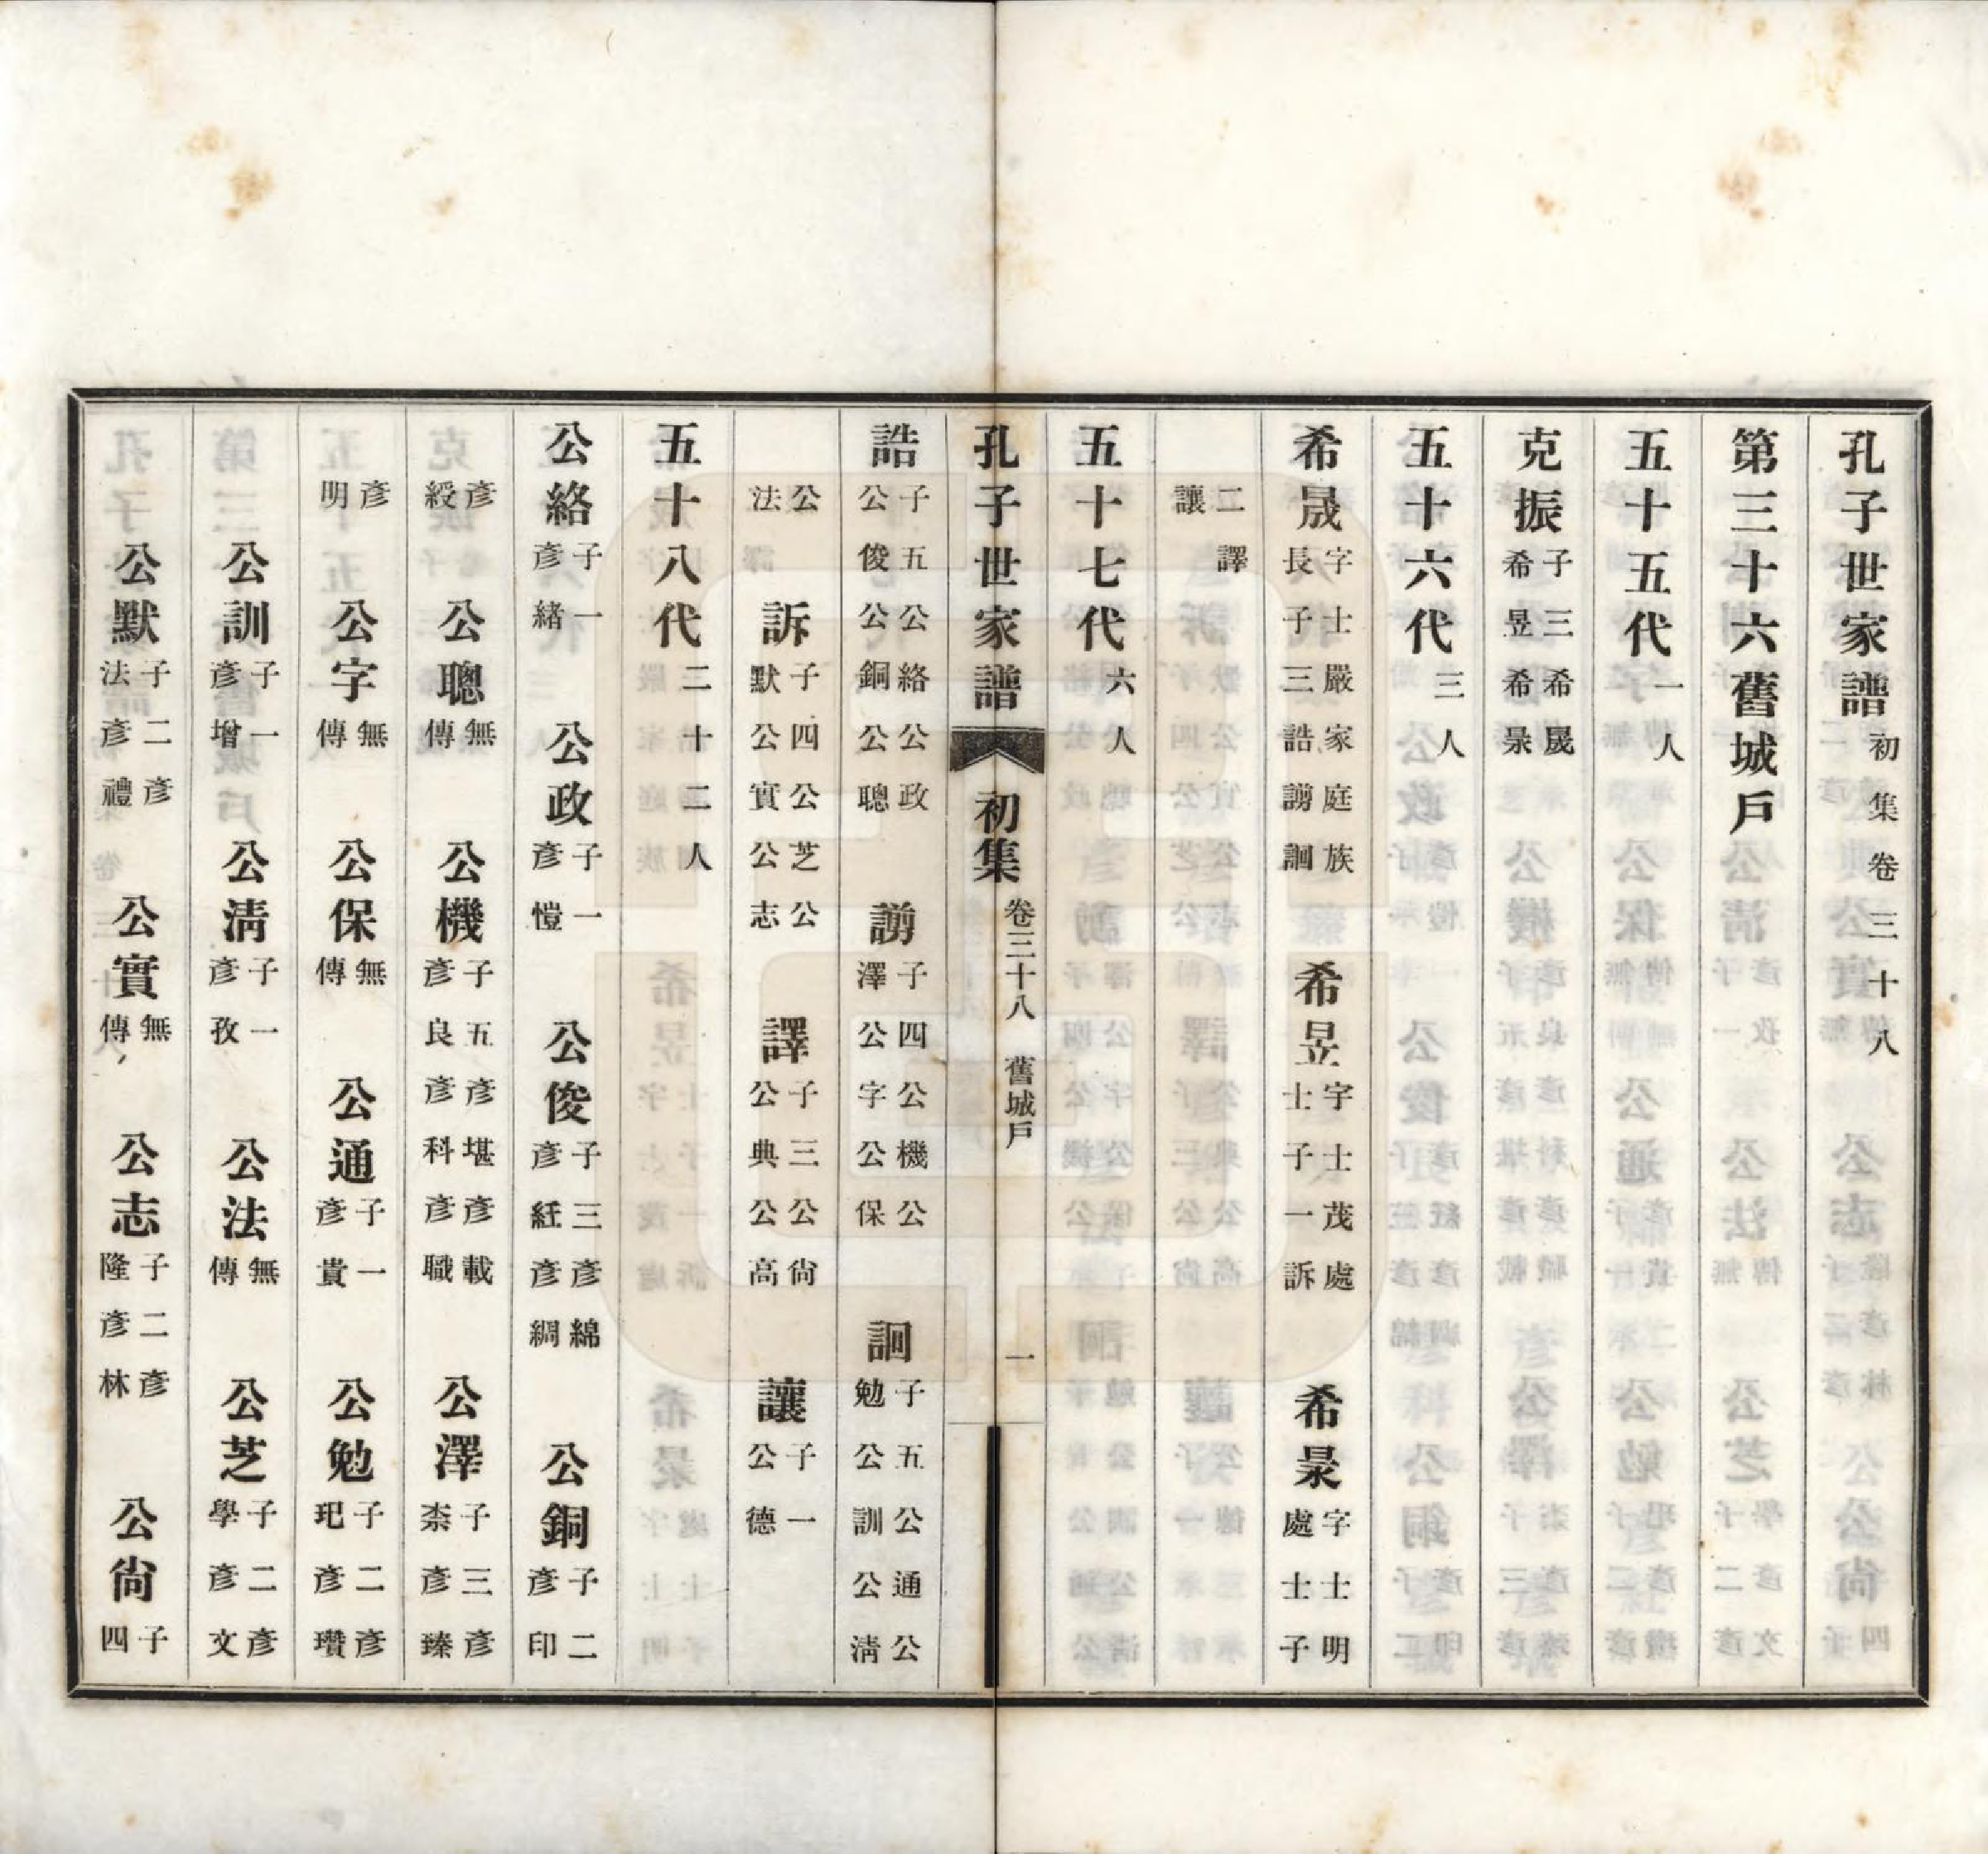 孔子世家譜初集卷三十八
第三十六舊城戶
五十五代一人
克振子三希晟希昱希㫤
五十六代三人
希晟字士嚴家庭族長子三誥謭詷 希昱字士茂處士子一訴 希㫤字士明處士子
二譯讓
五十七代六人
孔子世家譜 初集 卷三十八 舊城戶 一
誥子五公絡公政公俊公銅公聰 謭子四公機公澤公字公保 詷子五公通公勉公訓公淸
公法 訴子四公芝公默公實公志 譯子三公尙公典公高 讓子一公德
五十八代二十二人
公絡子一彥緒 公政子一彥愷 公俊子三彥綿彥紝彥綢 公銅子二彥印
彥綬 公聰無傳 公機子五彥堪彥良彥載彥科彥職 公澤子三彥臻彥柰
彥明 公字無傳 公保無傳 公通子一彥貴 公勉子二彥玘彥瓚
公訓子一彥增 公淸子一彥孜 公法無傳 公芝子二彥學彥文
公默子二彥法彥禮 公實無傳 公志子二彥隆彥林 公尙子四